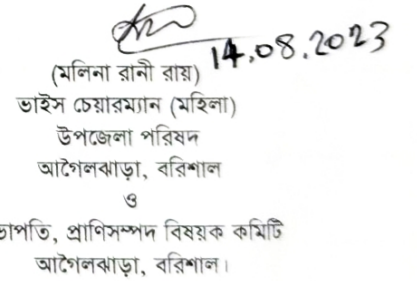 14.08.2023
(মলিনা রানী রায়)
ভাইস চেয়ারম্যান (মহিলা)
উপজেলা পরিষদ
আগৈলঝাড়া, বরিশাল
ও
প্রাণিসম্পদ বিষয়ক কমিটি
আগৈলঝাড়া, বরিশাল।